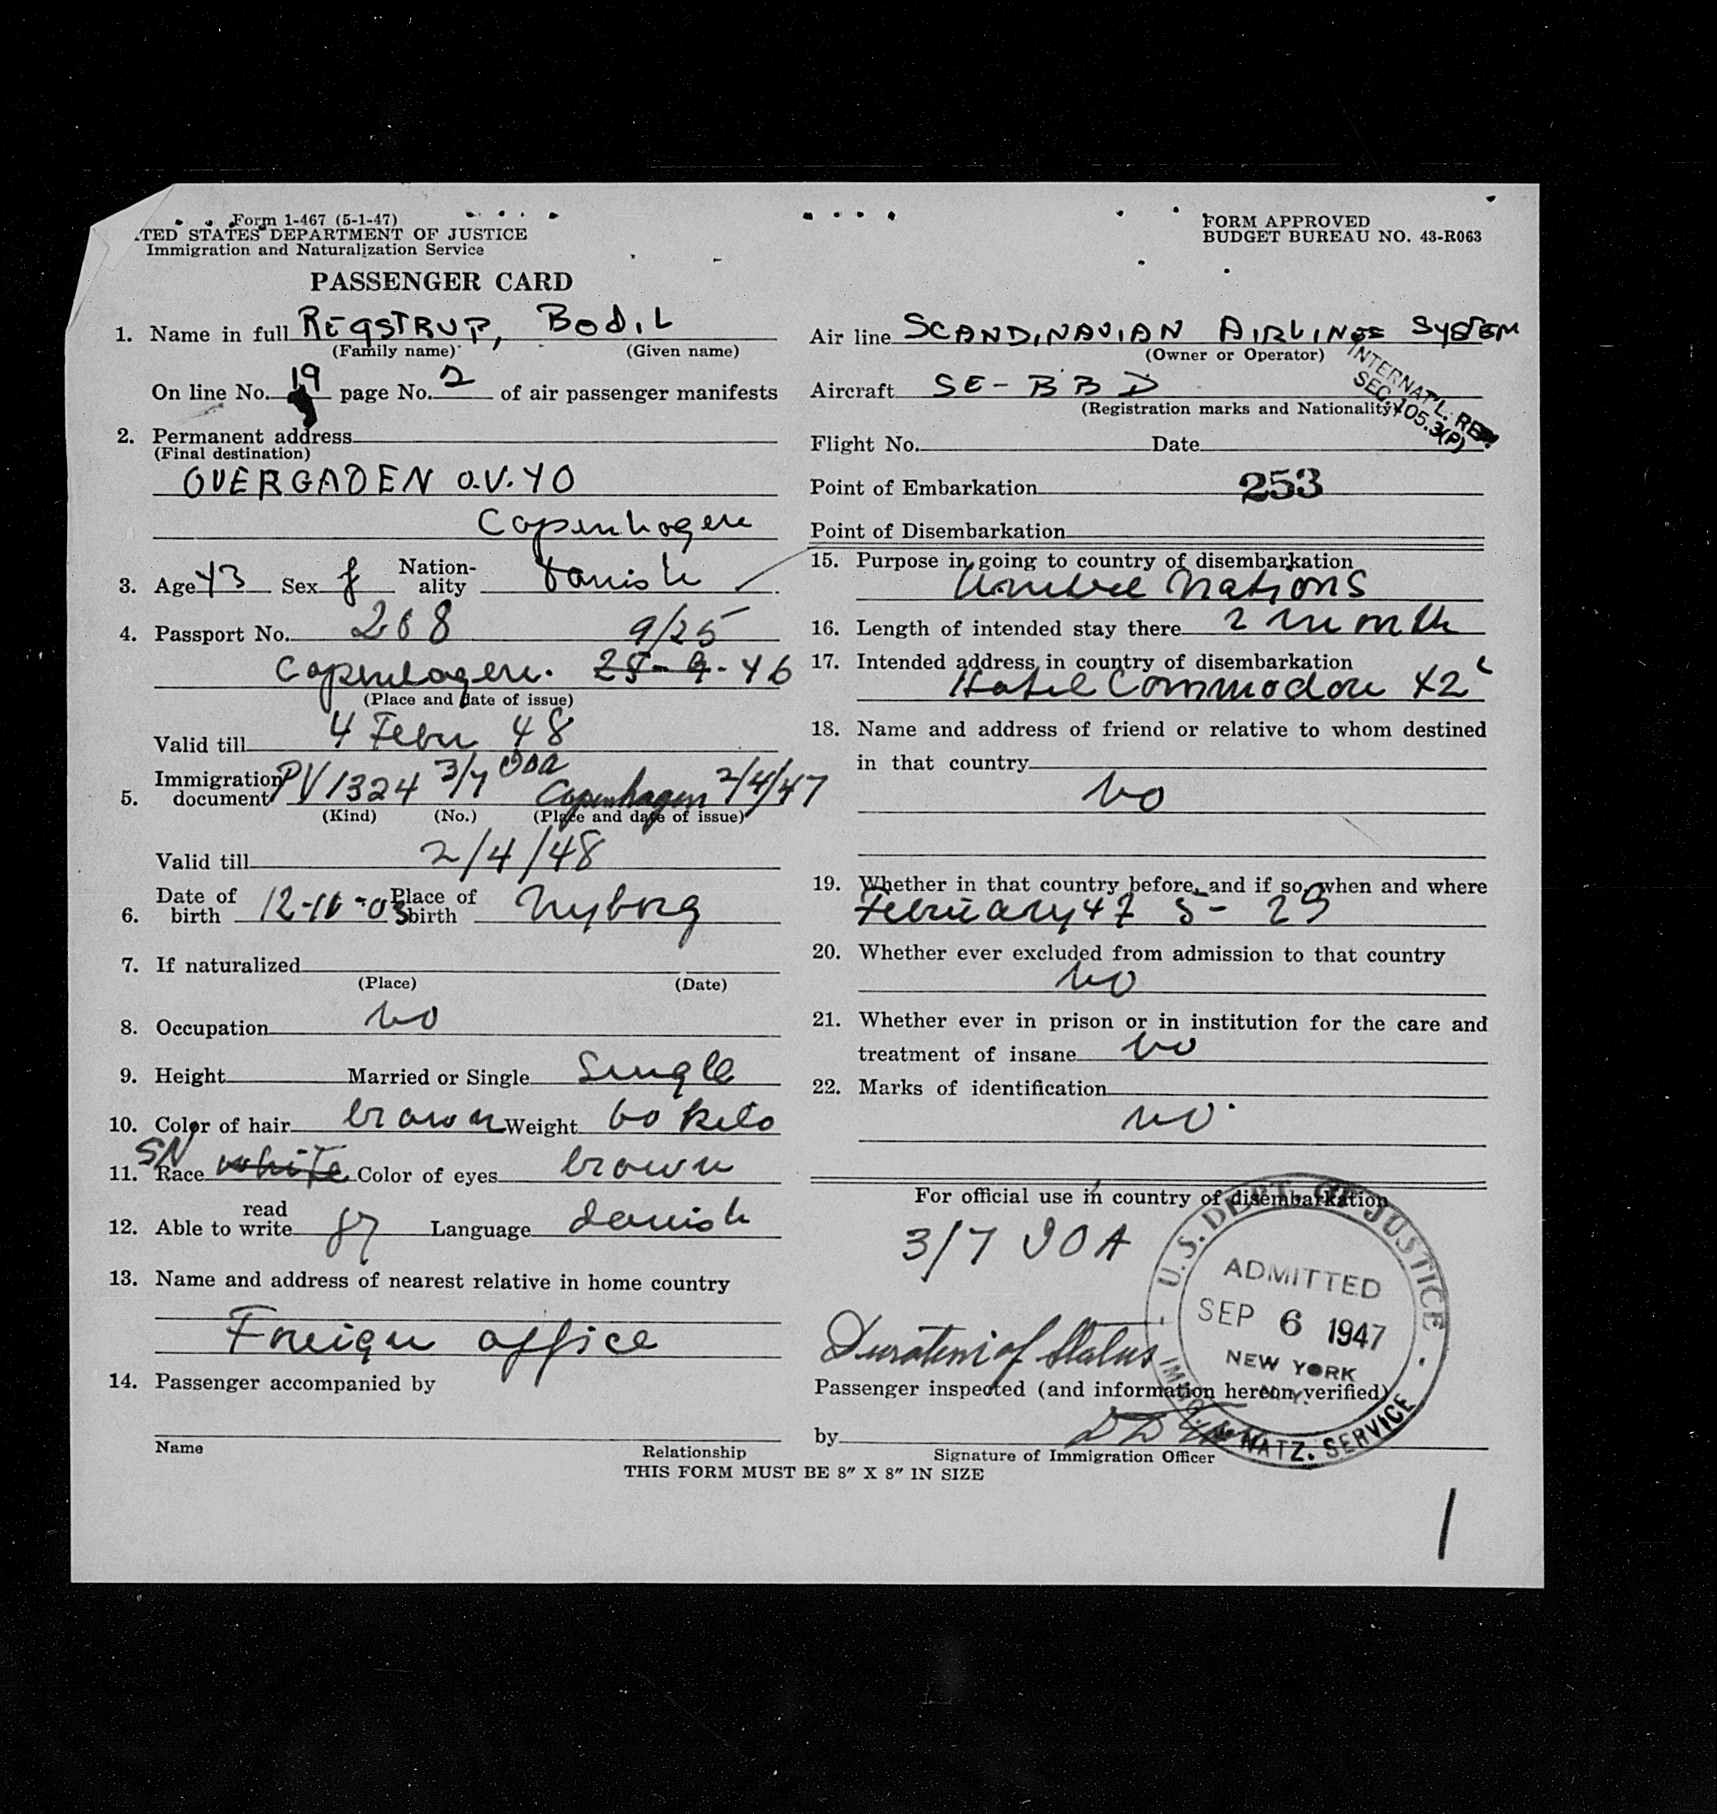 Form 1-467 (5-1-47)
TED STATES DEPARTMENT OF JUSTICE
Immigration and Naturalization Service
FORM APPROVED
BUDGET BUREAU NO. 43-R063
PASSENGER CARD
1. Name in full REGSTRUP, Bodil
(Family name) (Given name)
On line No. 19 page No. 2 of air passenger manifests
2. Permanent address
(Final destination)
OVERGADEN O.V. 40
Copenhagen
3. Age 43 Sex f Nation-ality Danish
4. Passport No. 208 9/25
Copenhagen. 25-9-46
(Place and date of issue)
Valid till 4 Febr 48
5. Immigration document PV 1324 3/7 IOA Copenhagen 2/4/47
(Kind) (No.) (Place and date of issue)
Valid till 2/4/48
6. Date of birth 12-10-03 Place of birth Nyborg
7. If naturalized
(Place) (Date)
8. Occupation no
9. Height Married or Single Single
10. Color of hair brown Weight 60 kilo
SN
11. Race white Color of eyes brown
12. Able to read write Language danish
13. Name and address of nearest relative in home country
Foreign office
14. Passenger accompanied by
Name Relationship
Air line SCANDINAVIAN AIRLINES SYSTEM
(Owner or Operator)
Aircraft SE-BBD
(Registration marks and Nationality)
INTERNAT'L. REV.
SEC. 105.3(P)
Flight No. Date
Point of Embarkation 253
Point of Disembarkation
15. Purpose in going to country of disembarkation
United Nations
16. Length of intended stay there 2 month
17. Intended address in country of disembarkation
Hotel Commodore 42
18. Name and address of friend or relative to whom destined
in that country
no
19. Whether in that country before, and if so, when and where
February 47 5- 29
20. Whether ever excluded from admission to that country
no
21. Whether ever in prison or in institution for the care and
treatment of insane no
22. Marks of identification
no.
For official use in country of disembarkation
3/7 IOA
Duration of Status
U.S. DEPT. OF JUSTICE
ADMITTED
SEP 6 1947
NEW YORK
N.Y.
IMMIG. & NATZ. SERVICE
Passenger inspected (and information hereon verified)
by
Signature of Immigration Officer
THIS FORM MUST BE 8" X 8" IN SIZE
1